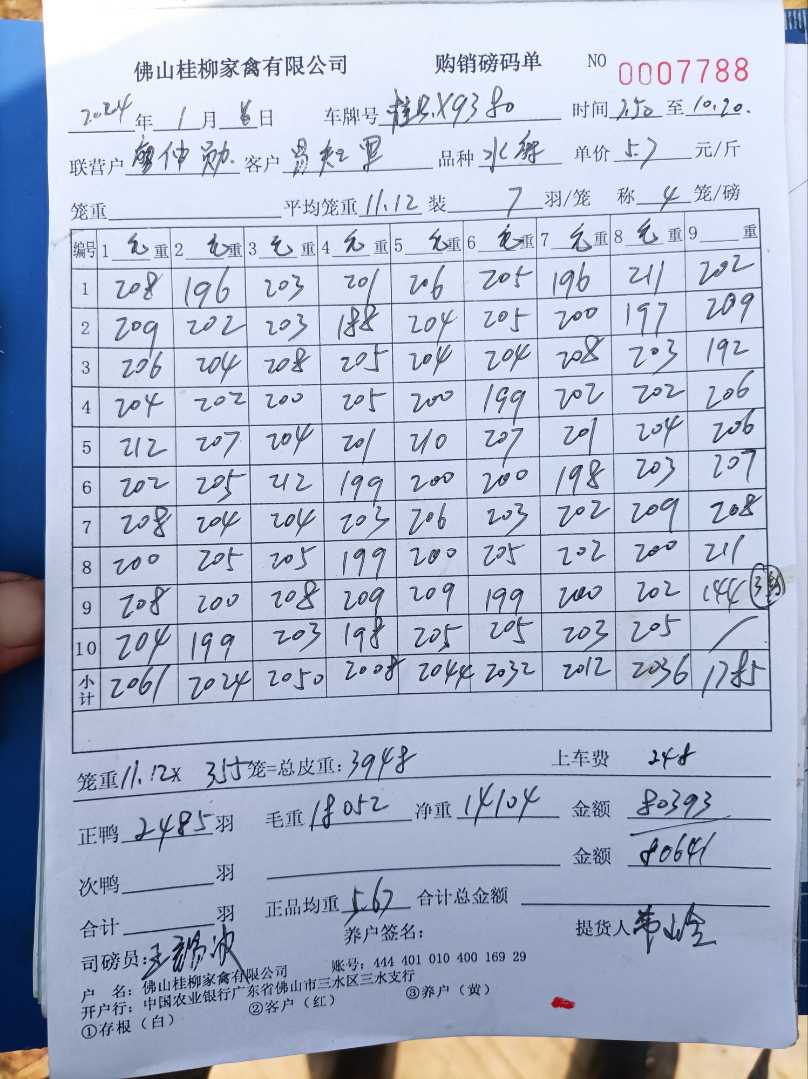 佛山桂柳家禽有限公司 购销磅码单 NO 0007788
2024年1月8日 车牌号 X9380 时间7.50至10.20.
联营户 仲勋 客户 品种 水 单价5.7元/斤
笼重 平均笼重11.12装7羽/笼 称4笼/磅
编号 1毛重 2毛重 3毛重 4毛重 5毛重 6毛重 7毛重 8毛重 9 重
1 208 196 203 201 206 205 196 211 202
2 209 202 203 188 204 205 200 197 209
3 206 204 208 205 204 204 208 203 192
4 204 202 200 205 200 199 202 202 206
5 212 207 204 201 210 207 201 204 206
6 202 205 212 199 200 200 198 203 207
7 208 204 204 203 206 203 202 209 208
8 200 205 205 199 200 205 202 200 211
9 208 200 208 209 209 199 200 202 144 3
10 204 199 203 198 205 205 203 205 /
小计 2061 2024 2050 2008 2044 2032 2012 2036 1785
笼重11.12x 355笼=总皮重:3948 上车费 248
正鸭2485羽 毛重18052 净重14104 金额80393
次鸭 羽 金额80641
合计 羽 正品均重5.67 合计总金额
司磅员:王 养户签名: 提货人
户 名:佛山桂柳家禽有限公司 账号:444 401 010 400 169 29
开户行:中国农业银行广东省佛山市三水区三水支行
①存根(白) ②客户(红) ③养户(黄)